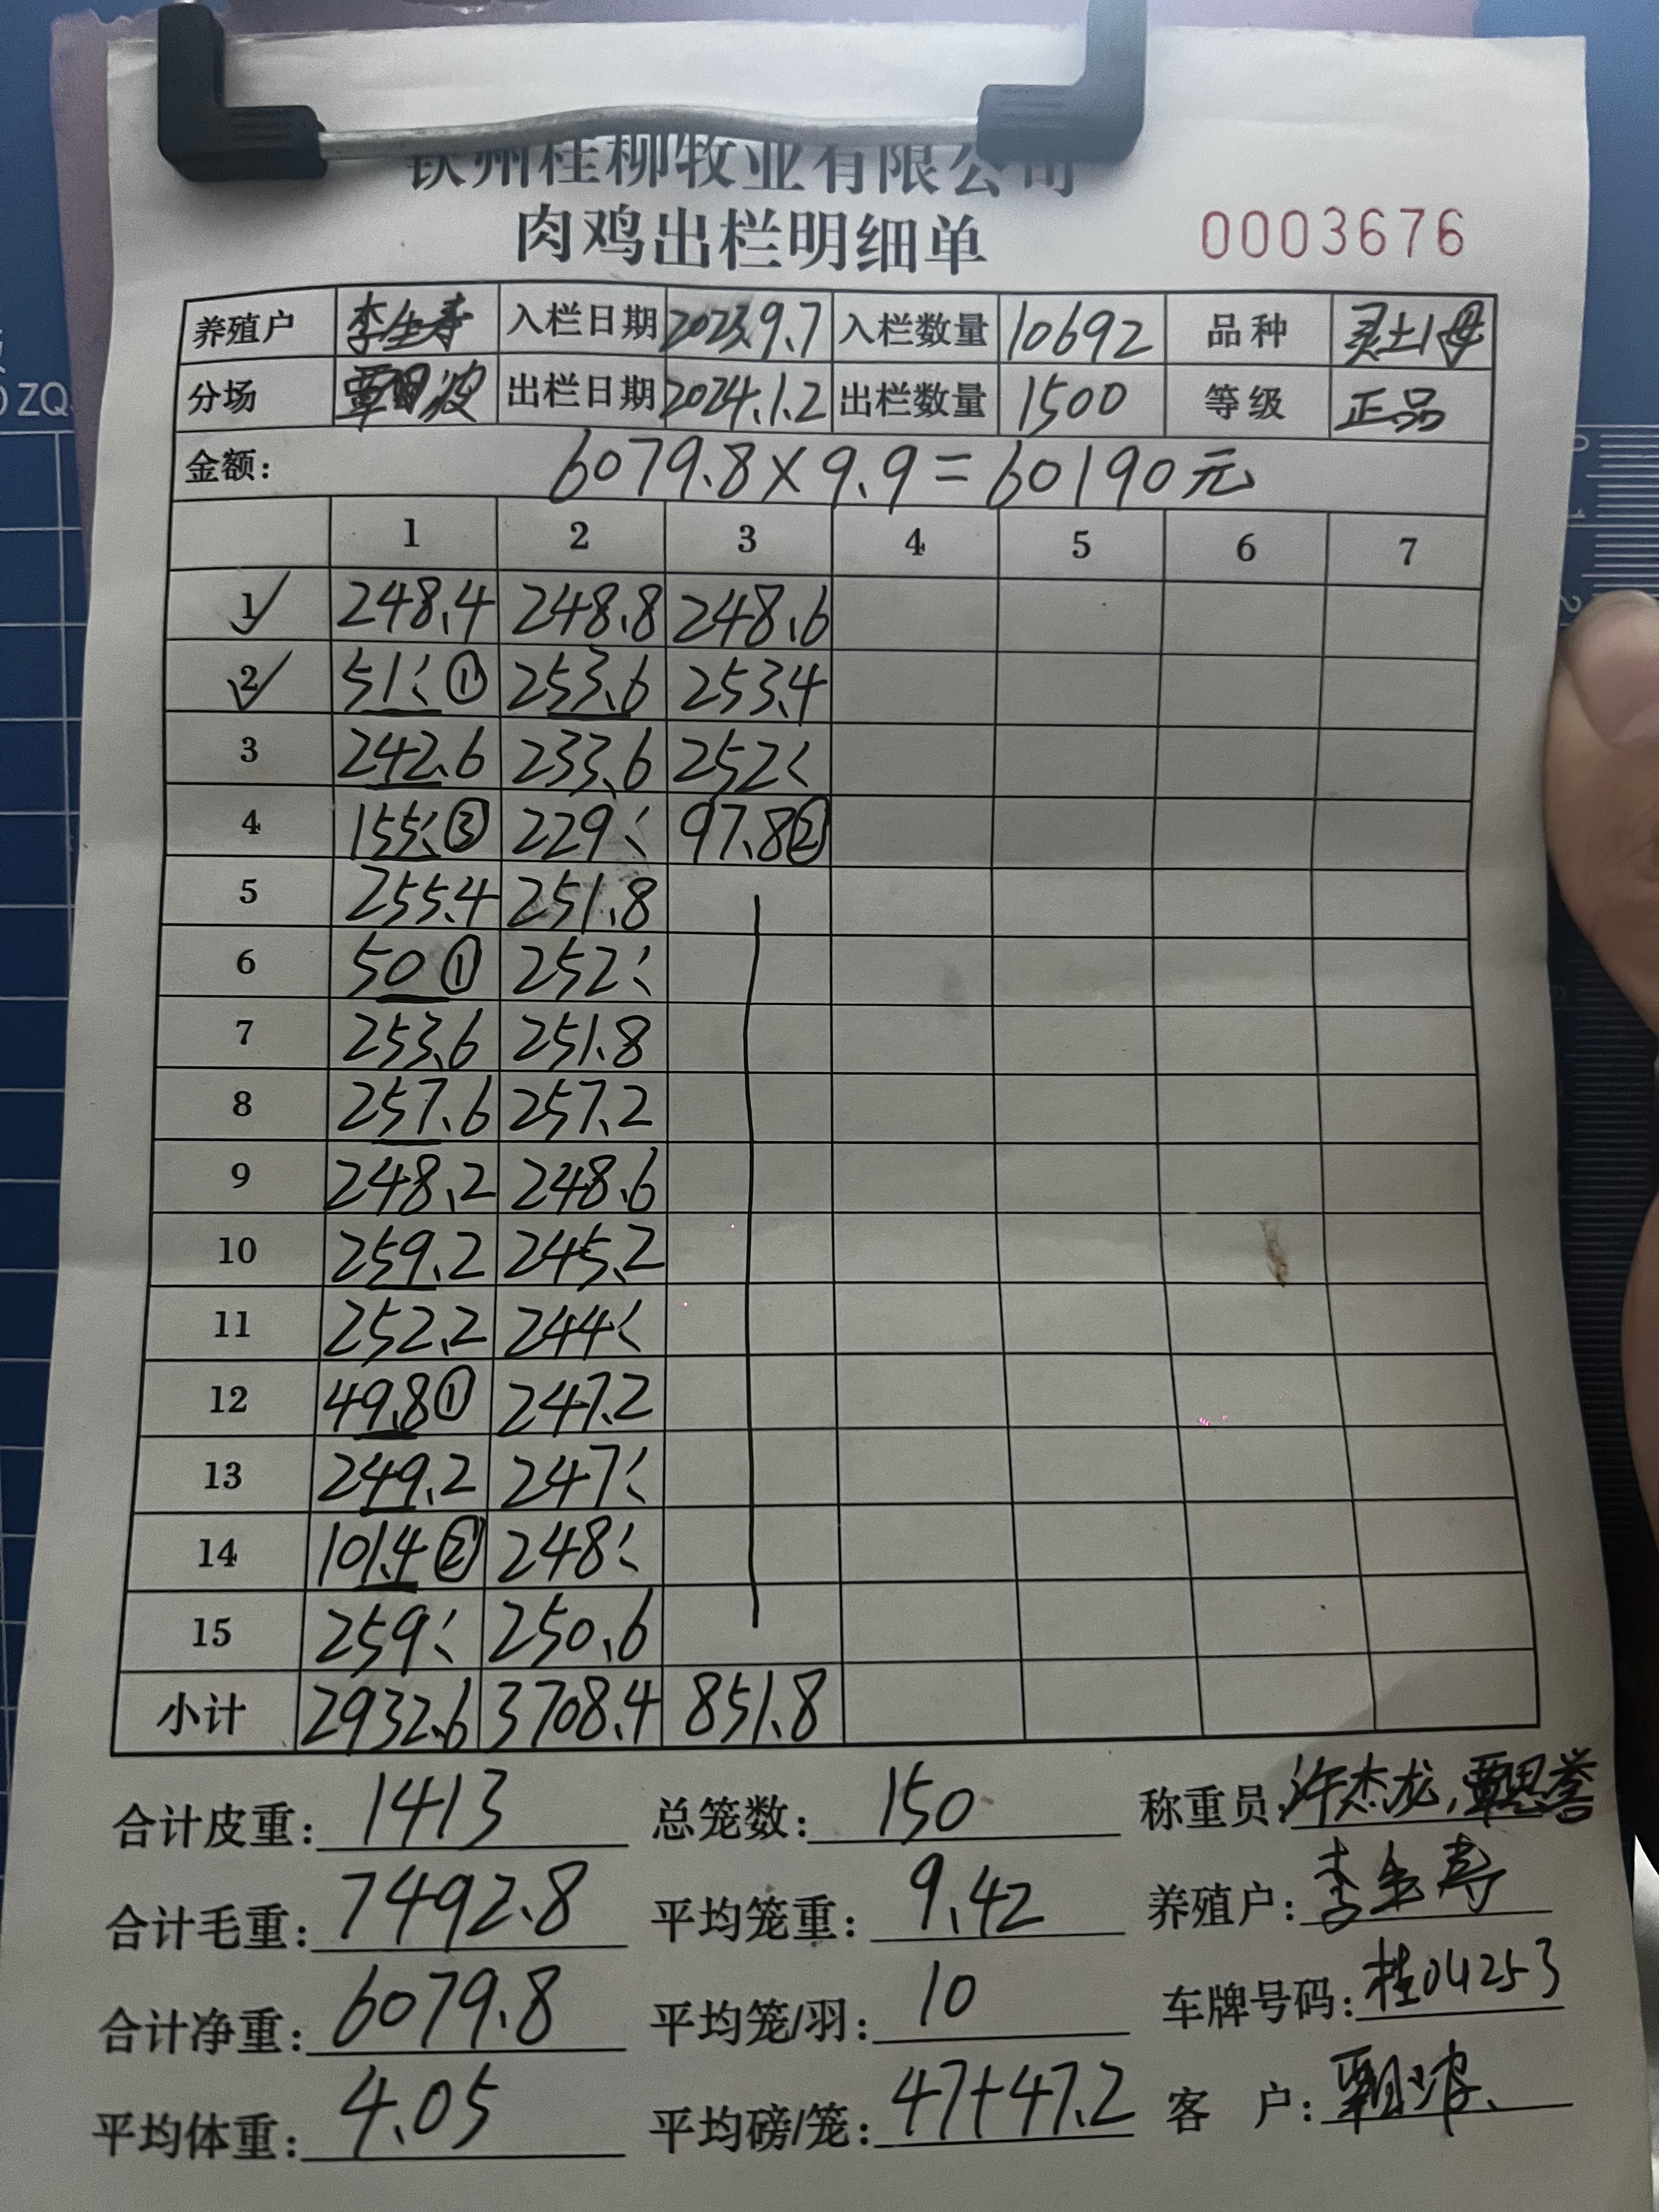 钦州桂柳牧业有限公司
肉鸡出栏明细单 0003676
养殖户 李生寿 入栏日期 2023.9.7 入栏数量 10692 品种 灵土1母
分场 出栏日期 2024.1.2 出栏数量 1500 等级 正品
金额: 6079.8×9.9=60190元
1 2 3 4 5 6 7
1 248.4 248.8 248.6
2 51 ① 253.6 253.4
3 242.6 233.6 252
4 155 ③ 229 97.8②
5 255.4 251.8
6 50 ① 252
7 253.6 251.8
8 257.6 257.2
9 248.2 248.6
10 259.2 245.2
11 252.2 244
12 49.8① 247.2
13 249.2 247
14 101.4② 248
15 259 250.6
小计 2932.6 3708.4 851.8
合计皮重: 1413 总笼数: 150 称重员: 许杰龙,覃思誉
合计毛重: 7492.8 平均笼重: 9.42 养殖户: 李生寿
合计净重: 6079.8 平均笼/羽: 10 车牌号码: 桂04253
平均体重: 4.05 平均磅/笼: 47+47.2 客 户:
ZQ